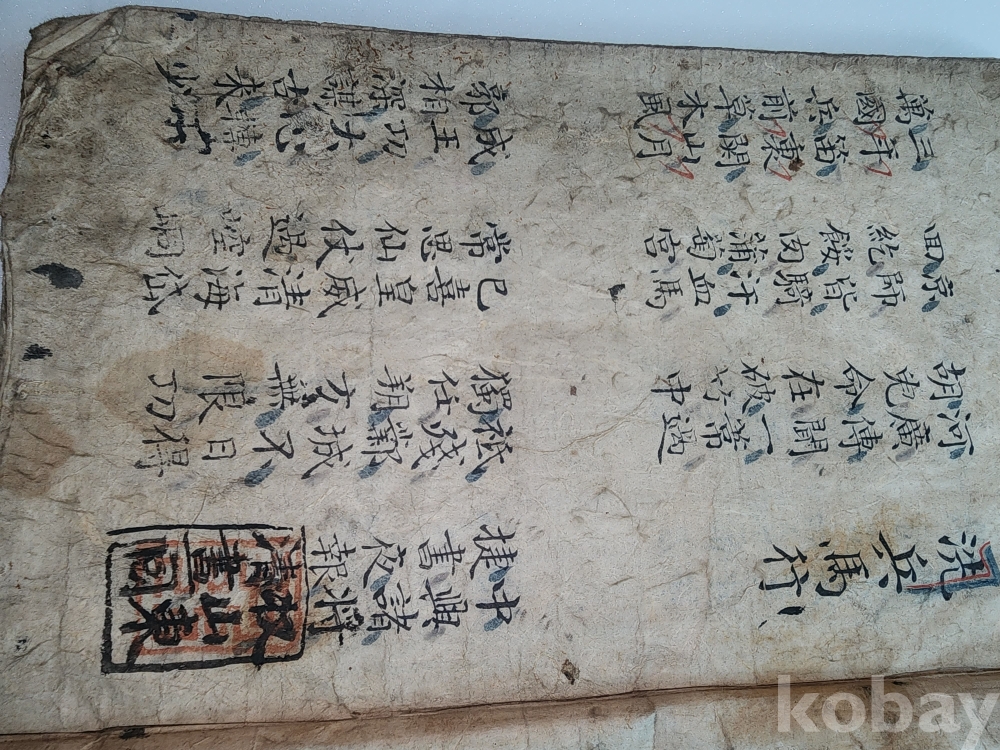 洗兵馬行
中興諸將收山東
捷書夜報清晝同
河廣傳聞一葦過
胡兒命在破竹中
祗殘鄴城不日得
獨任朔方無限功
京師皆騎汗血馬
回紇餧肉蒲萄宮
已喜皇威清海岱
常思仙仗過崆峒
三年笛裏關山月
萬國兵前草木風
成王功大心轉小
郭相深謀古來少
kobay